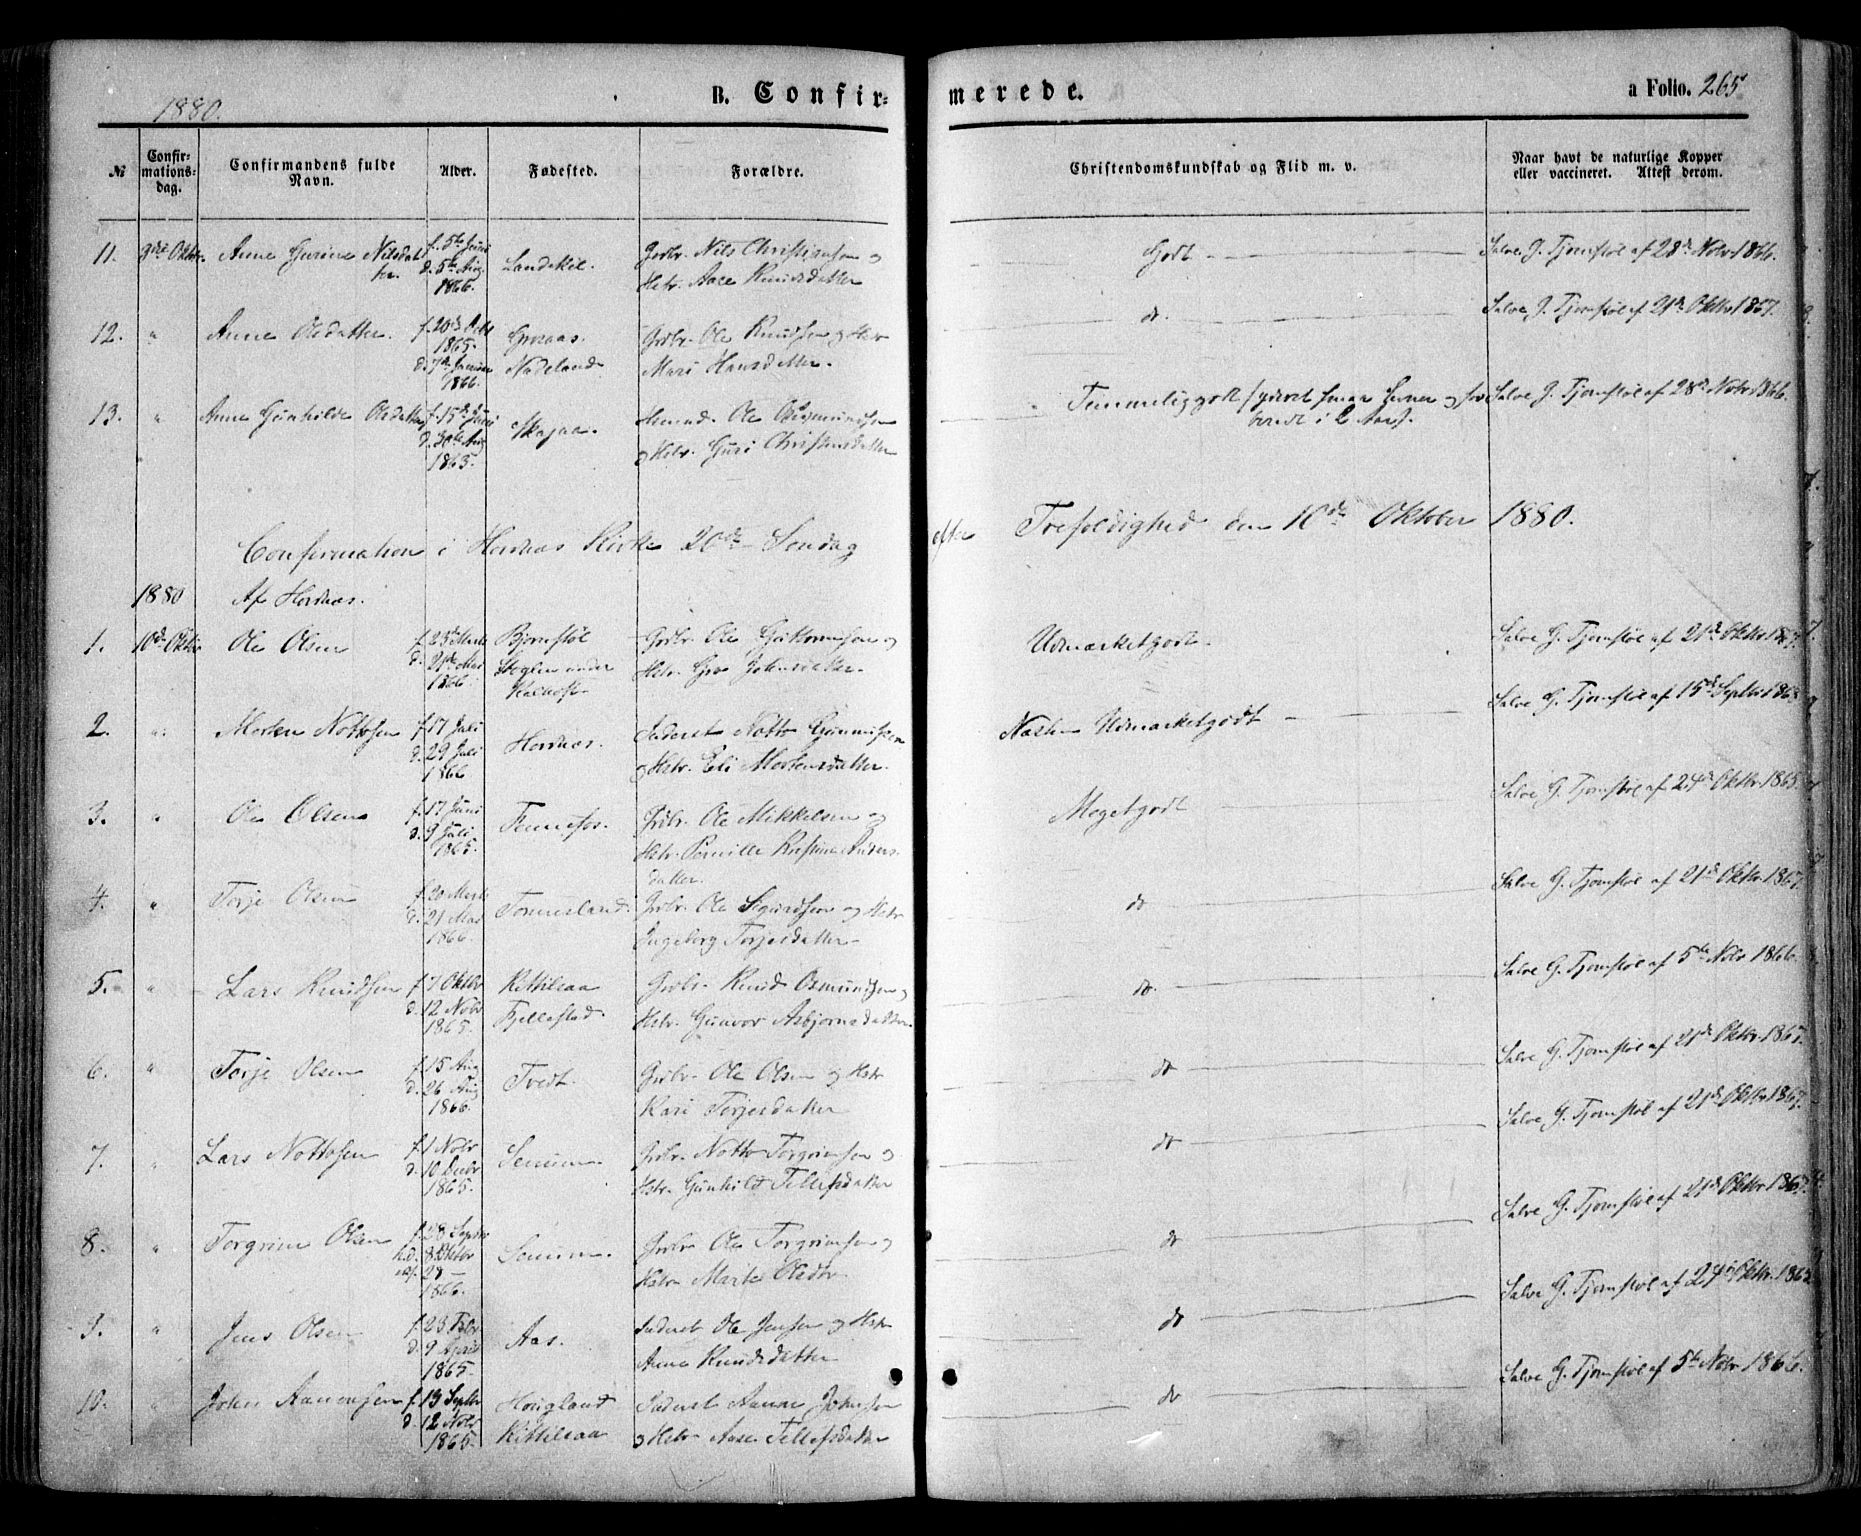 1880.
B. Confir=
merede.
a Folio. 265
№
Confir=
mations=
dag.
Confirmandens fulde
Navn.
Alder.
Fødested.
Forældre.
Christendomskundskab og Flid m. v.
Naar havt de naturlige Kopper
eller vaccineret. Attest derom.
11. 3die Oktbr. Anne Gurine Nilsdat
ter. f. 5te Juni
d. 5te Aug.
1866. Landekil. Grdbr. Nils Christiansen og
Hstr. Aase Knudsdatter Godt Salve G. Tjomstøl af 28de Novbr 1866.
12. " Anne Olsdatter. f. 20de
1865.
d. 7de Januar
1866. Graaas.
Nadeland Grdbr. Ole Knudsen og Hstr
Mari Hansdatter. do. Salve G. Tjomstøl af 21de Oktbr 1867.
13. " Anne Gunhilde Olsdatter f. 15de Juni
d. 30te Aug
1865. Skajaa. Ole Osmundsen
og Hstr. Guri Christensdatter Temmelig godt Salve G. Tjomstøl af 28de Novbr 1866.
Confirmation i Hordnes Kirke 20de Søndag efter Trefoldighed den 10de Oktober 1880.
1880 Af Hordnes.
1. 10de Oktbr Ole Olsen f. 25de Marts
d. 21de Mai
1866. Bjornstøl
under
Grdbr. Ole og
Hstr. Gro Johnsdatter. Udmærketgodt. Salve G. Tjomstøl af 21de Oktbr 1867.
2. " Morten Nottosen f. 17 Juli
d. 29 Juli
1866 Hordnes. Inderst Notto Gunnufsen
og Hstr. Eli Mortensdatter. Næsten Udmærketgodt Salve G. Tjomstøl af 15de Septbr 1868
3. " Ole Olsen f. 17 Juni
d. 9 Juli
1865. Fennefos. Grdbr. Ole Mikkelsen og
Hstr. Pernille Kristine Anders
datter. Megetgodt Salve G. Tjomstøl af 24de Oktbr. 1865.
4. " Torje Olsen f. 20 Marts
d. 21 Mai
1866. Tonnesland. Grdbr. Ole Sigurdsen og Hstr
Ingeborg Torjesdatter do Salve G. Tjomstøl af 21de Oktbr. 1867.
5. " Lars Knudsen f. 7 Oktbr
d. 12 Novbr
1865. Kittilsaa
Fjellestad. Grdbr. Knud Osmundsen og
Hstr. Gunvor Asbjornsdatter. do. Salve G. Tjomstøl af 5te Novbr 1866.
6. " Torje Olsen f. 15 Aug
d. 26 Aug
1866. Tvedt. Grdbr. Ole Olsen og Hstr
Kari Torjesdatter do Salve G. Tjomstøl af 21de Oktbr. 1867.
7. " Lars Nottosen f. 1 Novbr
d. 10 Decbr
1865. Senum. Grdbr. Notto Torgrimsen og
Hstr. Gunhild Tellefsdatter do Salve G. Tjomstøl af 21de Oktbr 1867.
8. " Torgrim Olsen f. 28 Septbr
h.d. 8 Oktbr
28 —
1866. Senum. Grdbr Ole Torgrimsen og
Hstr Marte Olsdtr do Salve G. Tjomstøl af 21de Oktbr 1867.
9. " Jens Olsen f. 23 Febr
d. 9 April
1865. Aas. Inderst Ole Jensen og Hstr
Anne Knudsdatter do Salve G. Tjomstøl af 24de Oktbr. 1865
10. " John Aanensen f. 13 Septbr
d. 12 Novbr
1865. Hougland
Kittilsaa Inderst Aanen Johnsen
og Hstr Aase Tellefsdatter do Salve G. Tjomstøl af 5te Novbr 1866.